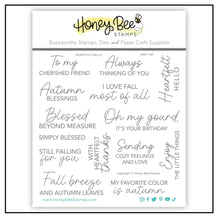 Honey Bee
STAMPS
Buzzworthy Stamps, Dies and Paper Craft Supplies
To my
CHERISHED FRIEND
Always
THINKING OF YOU
Heartfelt
HELLO
Autumn
BLESSINGS
I LOVE FALL
most of all
Blessed
BEYOND MEASURE
Oh my gourd,
IT'S YOUR BIRTHDAY
SIMPLY BLESSED
STILL FALLING
for you
WITH
HEARTFELT
thanks
Sending
COZY FEELINGS
AND LOVE
Enjoy
THE LITTLE THINGS
Fall breeze
AND AUTUMN LEAVES
MY FAVORITE COLOR
is autumn
www.HoneyBeeStamps.com